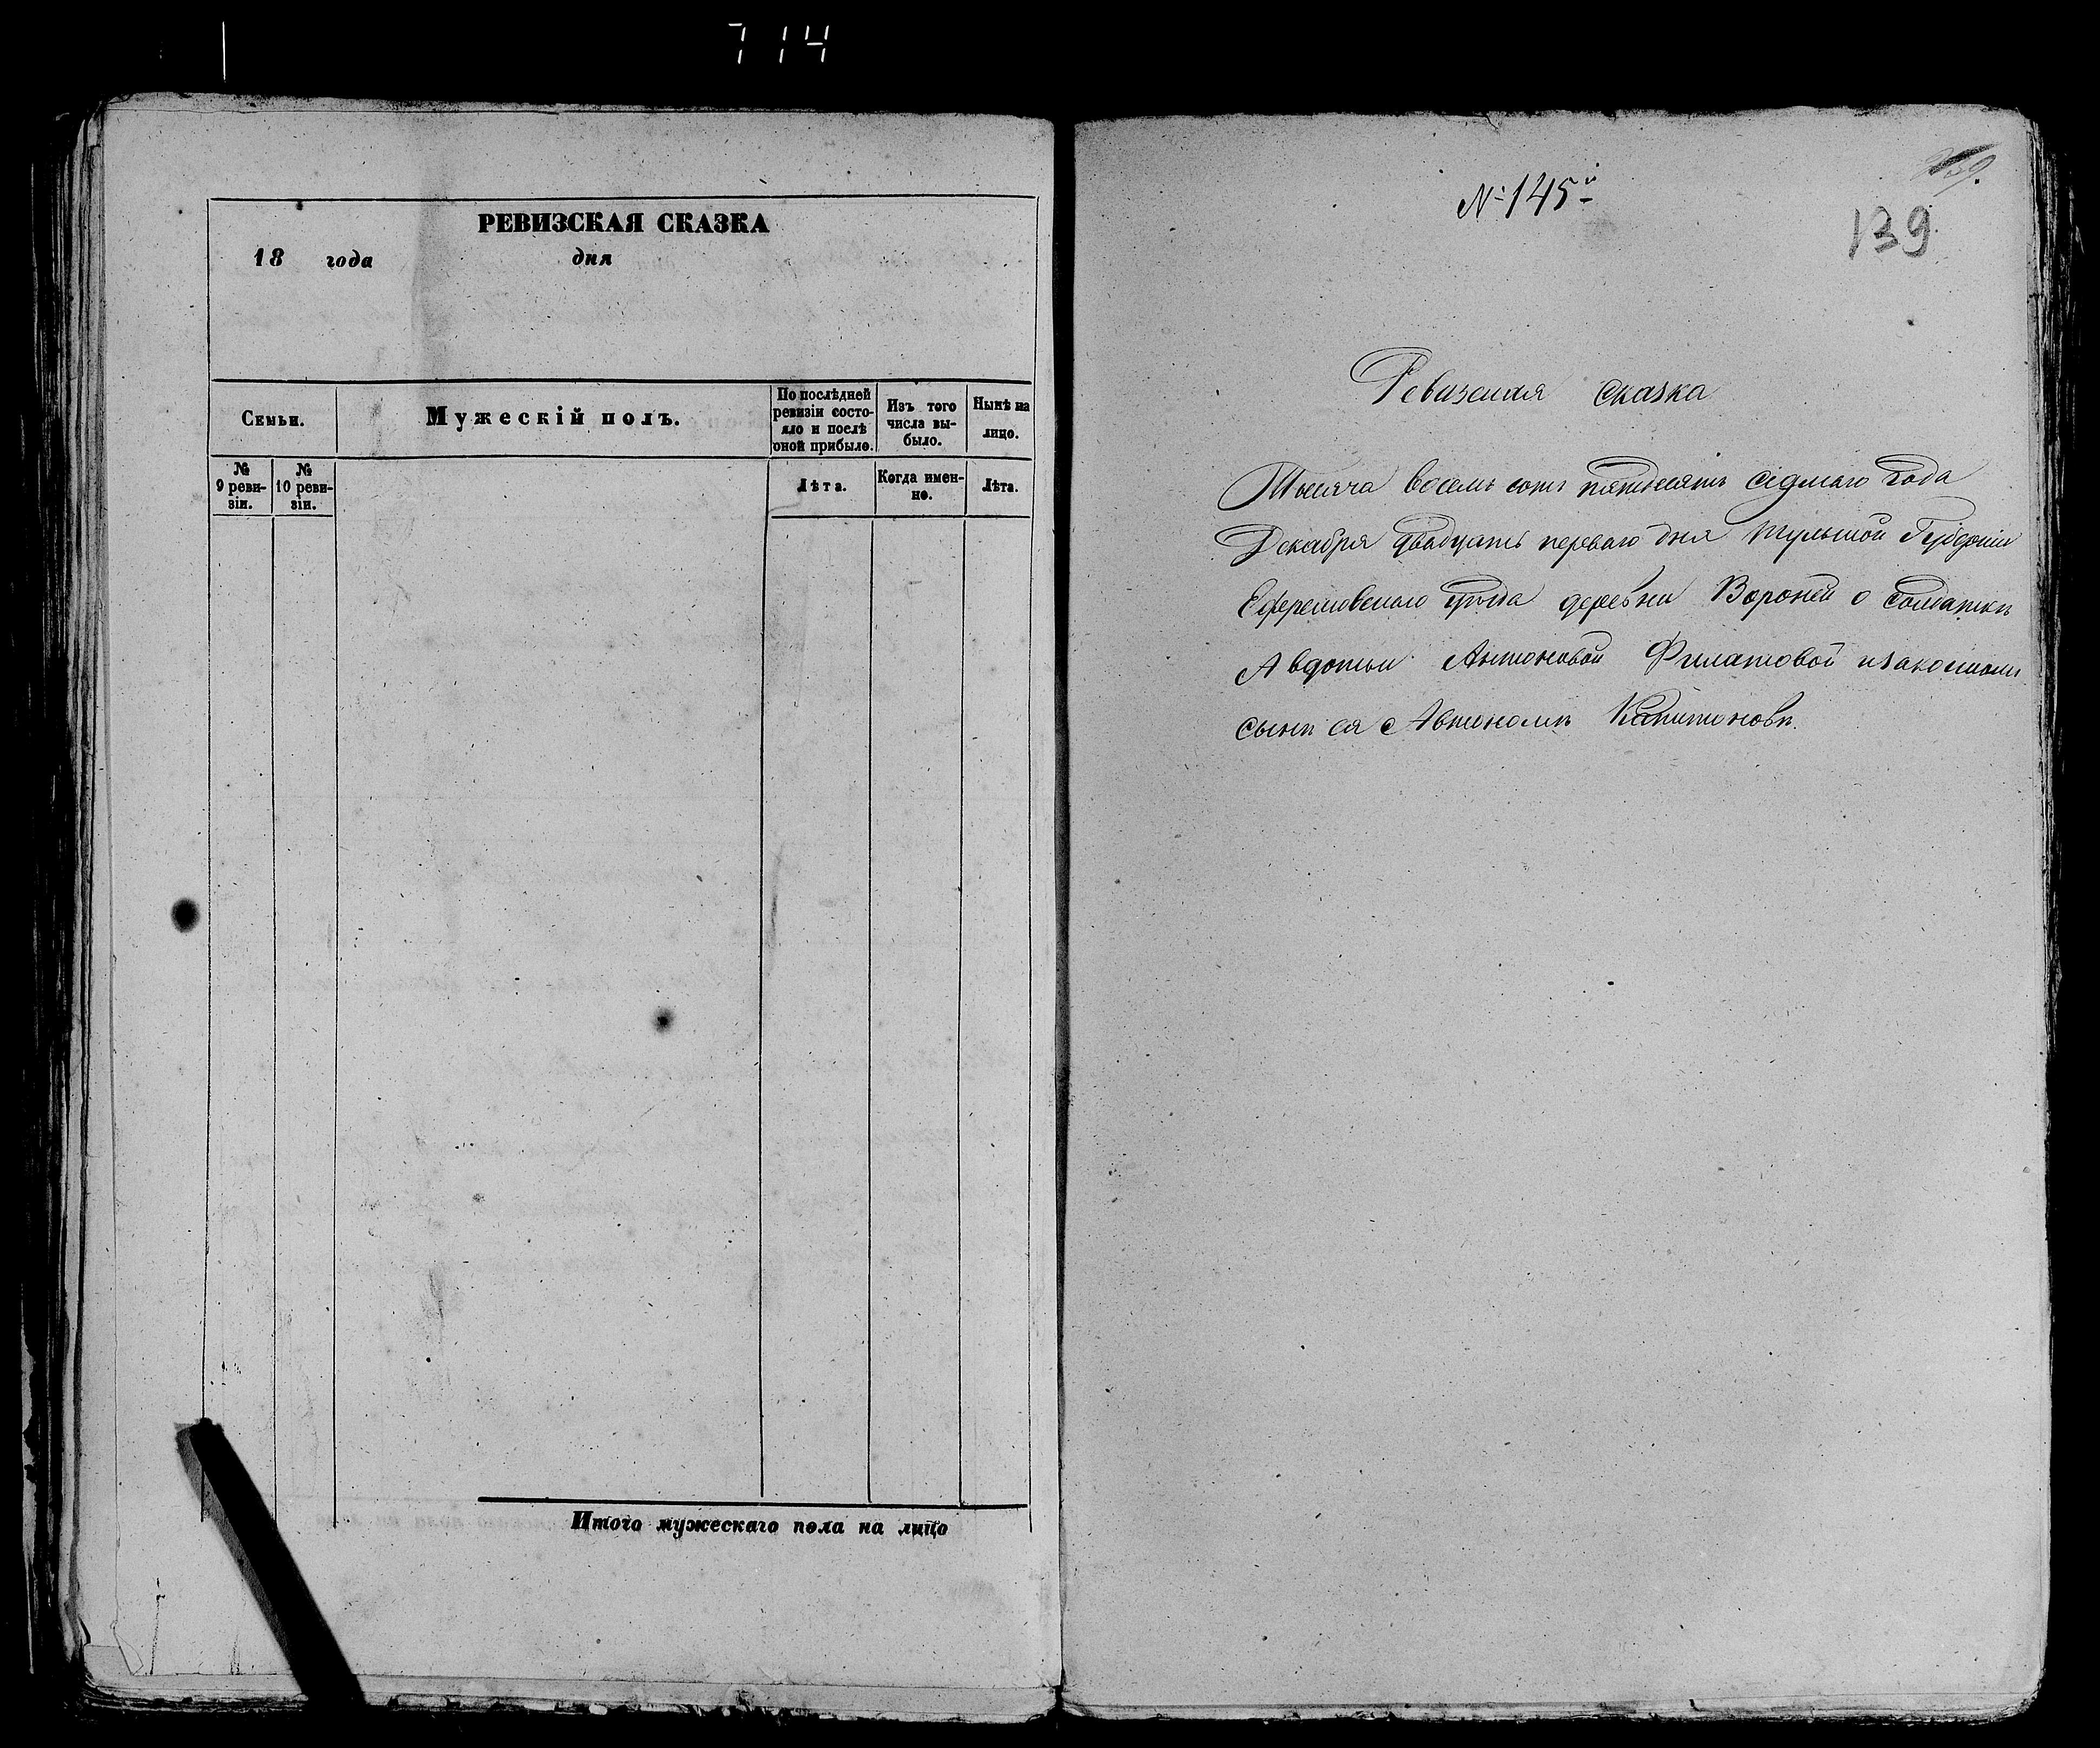 714
РЕВИЗСКАЯ СКАЗКА
18 года дня
Семьи.
Мужескій полъ.
По послѣдней ревизіи состояло и послѣ оной прибыло.
Изъ того числа выбыло.
Нынѣ на лицо.
№ 9 ревизіи.
№ 10 ревизіи.
Лѣта.
Когда именно.
Лѣта.
Итого мужескаго пола на лицо
№ 145й
139
Ревизская сказка
Тысяча восемь сотъ пятьдесятъ седмаго года
Декабря двадцать перваго дня Тульской Губерніи
Ефремовскаго уѣзда деревни Вороней о солдаткѣ
Авдотьи Антоновой Филатовой и законномъ
сынѣ ея Автономѣ Капитоновѣ.